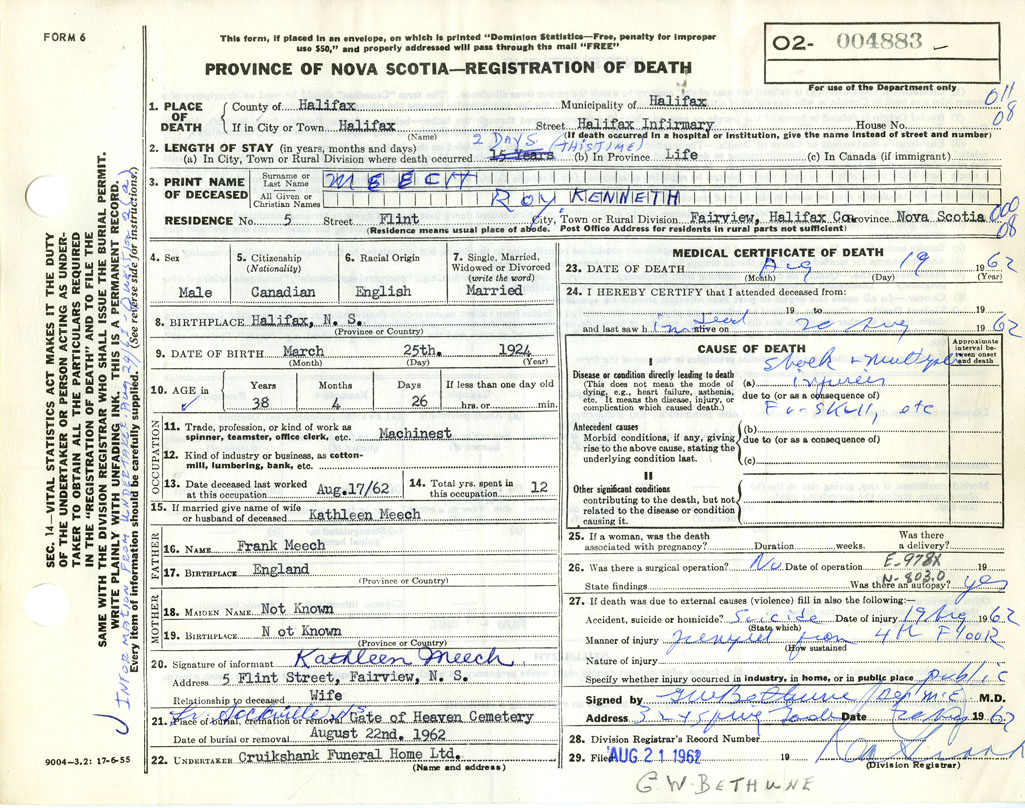 FORM 6
This form, if placed in an envelope, on which is printed "Dominion Statistics—Free, penalty for improper
use $50," and properly addressed will pass through the mail "FREE"
PROVINCE OF NOVA SCOTIA—REGISTRATION OF DEATH
O2- 004883
For use of the Department only
011
08
1. PLACE OF DEATH
County of Halifax Municipality of Halifax
If in City or Town Halifax Street Halifax Infirmary House No.
(Name) (If death occurred in a hospital or institution, give the name instead of street and number)
2 DAYS (THIS TIME)
2. LENGTH OF STAY (in years, months and days)
(a) In City, Town or Rural Division where death occurred 15 Years (b) In Province Life (c) In Canada (if immigrant)
3. PRINT NAME OF DECEASED
Surname or Last Name MEECH
All Given or Christian Names ROY KENNETH
RESIDENCE No. 5 Street Flint City, Town or Rural Division Fairview, Halifax Co. Province Nova Scotia
(Residence means usual place of abode. Post Office Address for residents in rural parts not sufficient)
000
08
4. Sex Male
5. Citizenship (Nationality) Canadian
6. Racial Origin English
7. Single, Married, Widowed or Divorced (write the word) Married
8. BIRTHPLACE Halifax, N. S.
(Province or Country)
9. DATE OF BIRTH March 25th. 1924
(Month) (Day) (Year)
10. AGE in Years Months Days If less than one day old
38 4 26 hrs. or min.
OCCUPATION
11. Trade, profession, or kind of work as
spinner, teamster, office clerk, etc. Machinest
12. Kind of industry or business, as cotton-
mill, lumbering, bank, etc.
13. Date deceased last worked at this occupation Aug.17/62
14. Total yrs. spent in this occupation 12
15. If married give name of wife
or husband of deceased Kathleen Meech
FATHER
16. NAME Frank Meech
17. BIRTHPLACE England
(Province or Country)
MOTHER
18. MAIDEN NAME Not Known
19. BIRTHPLACE N ot Known
(Province or Country)
20. Signature of informant Kathleen Meech
Address 5 Flint Street, Fairview, N. S.
Relationship to deceased Wife
21. Place of burial, cremation or removal Gate of Heaven Cemetery
Date of burial or removal August 22nd. 1962
22. UNDERTAKER Cruikshank Funeral Home Ltd.
(Name and address)
9004—3.2: 17-6-55
MEDICAL CERTIFICATE OF DEATH
23. DATE OF DEATH Aug 19 1962
(Month) (Day) (Year)
24. I HEREBY CERTIFY that I attended deceased from:
19 to 19
and last saw him dead alive on 20 Aug 1962
CAUSE OF DEATH
Approximate interval between onset and death
I
Disease or condition directly leading to death
(This does not mean the mode of
dying, e.g., heart failure, asthenia,
etc. It means the disease, injury, or
complication which caused death.)
(a) Shock + multiple injuries
due to (or as a consequence of)
Fx-skull, etc
Antecedent causes
Morbid conditions, if any, giving
rise to the above cause, stating the
underlying condition last.
(b)
due to (or as a consequence of)
(c)
II
Other significant conditions
contributing to the death, but not
related to the disease or condition
causing it.
25. If a woman, was the death
associated with pregnancy? Duration weeks. Was there a delivery?
26. Was there a surgical operation? No Date of operation 19
E-978X
N-803.0
State findings Was there an autopsy? yes
27. If death was due to external causes (violence) fill in also the following:—
Accident, suicide or homicide? Suicide Date of injury 19 Aug 1962
(State which)
Manner of injury Jumped from 4th Floor
(How sustained
Nature of injury
Specify whether injury occurred in industry, in home, or in public place public
Signed by G W Bethune M.D.
Address Date 1962
28. Division Registrar's Record Number
29. Filed AUG 21 1962 19
(Division Registrar)
G.W. BETHUNE
SEC. 14—VITAL STATISTICS ACT MAKES IT THE DUTY
OF THE UNDERTAKER OR PERSON ACTING AS UNDER-
TAKER TO OBTAIN ALL THE PARTICULARS REQUIRED
IN THE "REGISTRATION OF DEATH" AND TO FILE THE
SAME WITH THE DIVISION REGISTRAR WHO SHALL ISSUE THE BURIAL PERMIT.
WRITE PLAINLY WITH UNFADING INK. THIS IS A PERMANENT RECORD.
Every item of information should be carefully supplied. (See reverse side for instructions.)
INFORMATION FROM UNDERTAKER AUG 29/62 QUESTION 2(a)